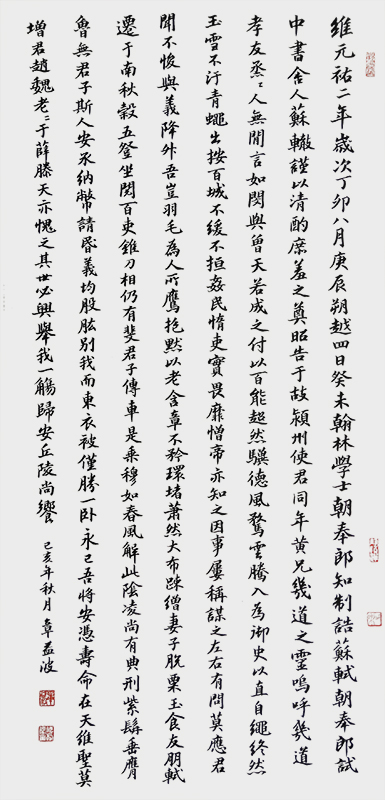 維元祐二年歲次丁卯八月庚辰朔越四日癸未翰林學士朝奉郎知制誥蘇軾朝奉郎試
中書舍人蘇轍謹以清酌庶羞之奠昭告于故潁州使君同年黃兄幾道之靈嗚呼幾道
孝友烝〻人無閒言如閔與曾天若成之付以百能超然驥德風騖雲騰入為御史以直自繩終然
玉雪不汙青蠅出按百城不緩不揯姦民惰吏實畏靡憎帝亦知之因事屢稱謀之左右有問莫應君
聞不悛與義降升吾豈羽毛為人所鷹抱默以老含章不矜環堵蕭然大布疎繒妻子脫粟玉食友朋軾
遷于南秋穀五登坐閱百吏錐刀相仍有斐君子傳車是乘穆如春風解此陰凌尚有典刑紫髯垂膺
魯無君子斯人安承納幣請昏義均股肱別我而東衣袂僅勝一臥永已吾將安憑壽命在天維聖莫
增君趙魏老〻于薛滕天亦愧之其世必興舉我一觴歸安丘陵尚饗 己亥年秋月 章益波